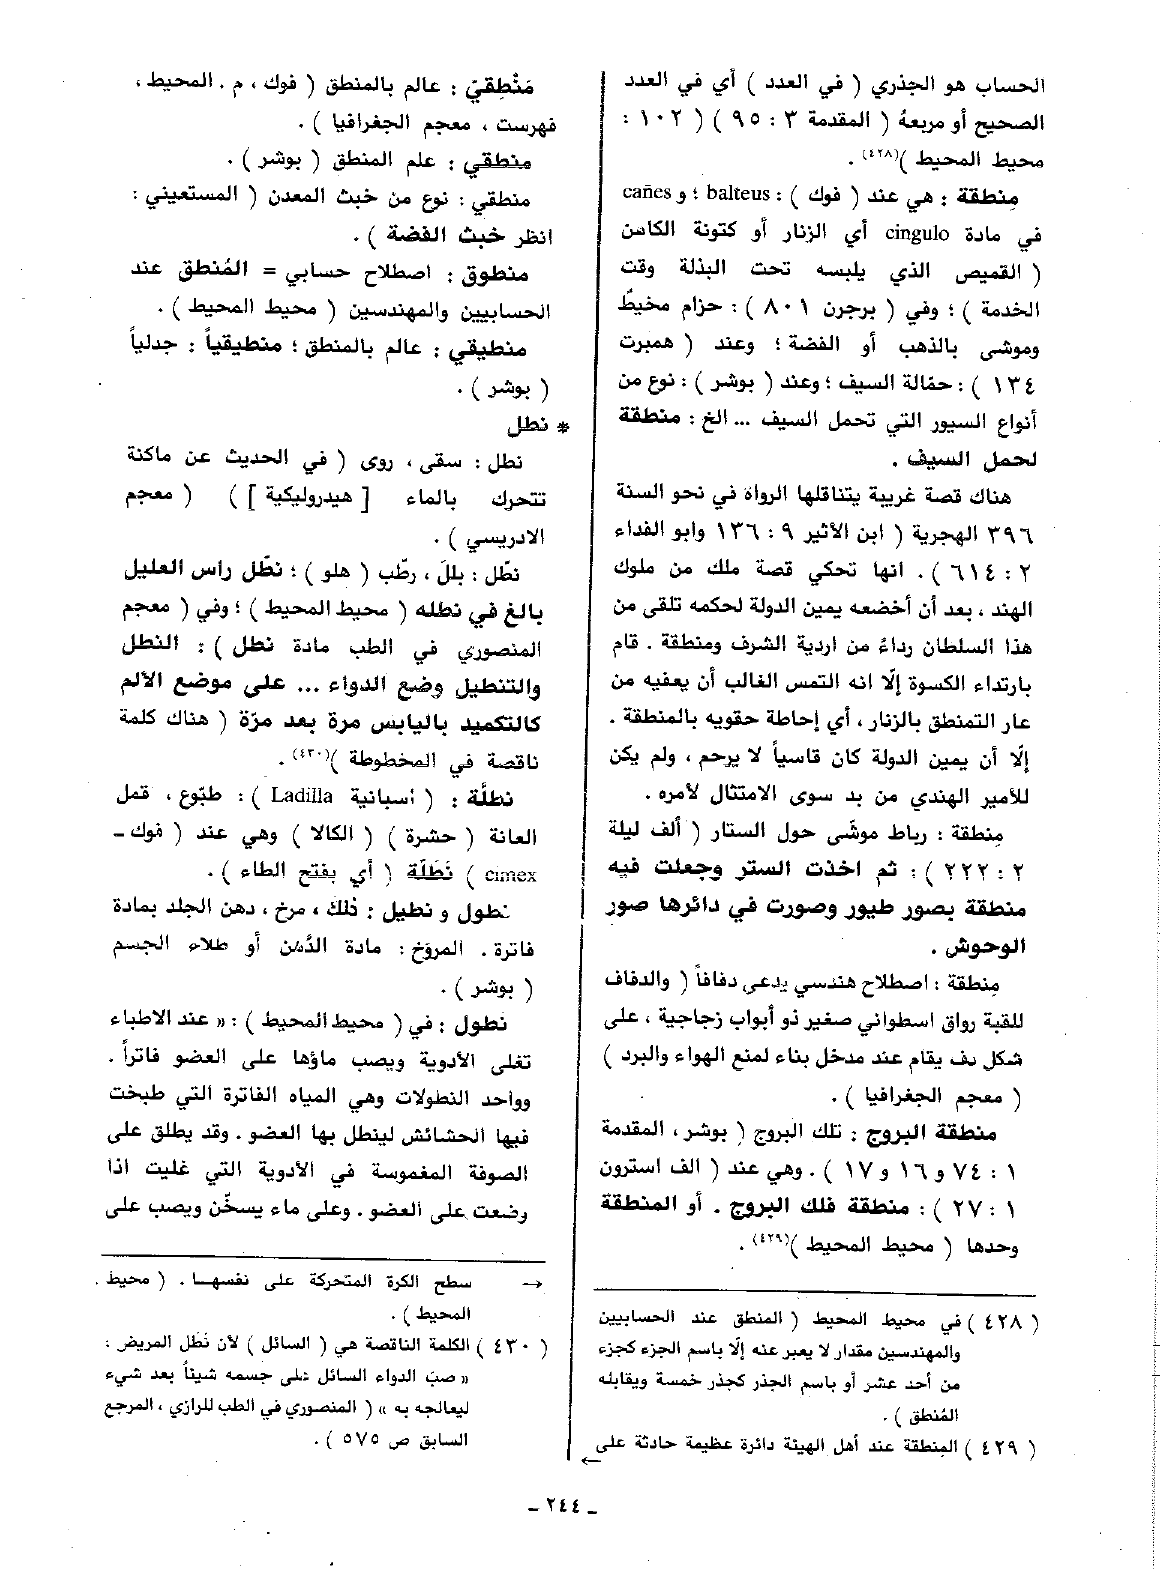 الحساب هو الجذري ( في العدد ) أي في العدد
الصحيح أو مربعهُ ( المقدمة ٣ : ٩٥ ) ( ١٠٢ :
محيط المحيط )(٤٢٨) .
مِنطقة : هي عند ( فوك ) : balteus ؛ و cañes
في مادة cingulo أي الزنار أو كتونة الكاهن
( القميص الذي يلبسه تحت البذلة وقت
الخدمة ) ؛ وفي ( برجرن ٨٠١ ) : حزام مخيطٌ
وموشى بالذهب أو الفضة ؛ وعند ( همبرت
١٣٤ ) : حمّالة السيف ؛ وعند ( بوشر ) : نوع من
أنواع السيور التي تحمل السيف ... الخ : منطقة
لحمل السيف .
هناك قصة غريبة يتناقلها الرواة في نحو السنة
٣٩٦ الهجرية ( ابن الأثير ٩ : ١٣٦ وابو الفداء
٢ : ٦١٤ ) . انها تحكي قصة ملك من ملوك
الهند ، بعد أن أخضعه يمين الدولة لحكمه تلقى من
هذا السلطان رداءً من اردية الشرف ومنطقة . قام
بارتداء الكسوة إلّا انه التمس الغالب أن يعفيه من
عار التمنطق بالزنار ، أي إحاطة حقويه بالمنطقة .
إلّا أن يمين الدولة كان قاسياً لا يرحم ، ولم يكن
للأمير الهندي من بد سوى الامتثال لأمره .
مِنطقة : رباط موشّى حول الستار ( ألف ليلة
٢ : ٢٢٢ ) : ثم اخذت الستر وجعلت فيه
منطقة بصور طيور وصورت في دائرها صور
الوحوش .
مِنطقة : اصطلاح هندسي يدعى دفافاً ( والدفاف
للقبة رواق اسطواني صغير ذو أبواب زجاجية ، على
شكل دف يقام عند مدخل بناء لمنع الهواء والبرد )
( معجم الجغرافيا ) .
منطقة البروج : تلك البروج ( بوشر ، المقدمة
١ : ٧٤ و ١٦ و ١٧ ) . وهي عند ( الف استرون
١ : ٢٧ ) : منطقة فلك البروج . أو المنطقة
وحدها ( محيط المحيط )(٤٢٩) .
( ٤٢٨ ) في محيط المحيط ( المنطق عند الحسابيين
والمهندسين مقدار لا يعبر عنه إلّا باسم الجزء كجزء
من أحد عشر أو باسم الجذر كجذر خمسة ويقابله
المُنطق ) .
( ٤٢٩ ) المِنطقة عند أهل الهيئة دائرة عظيمة حادثة على
←
مَنْطِقيّ : عالم بالمنطق ( فوك ، م . المحيط ،
فهرست ، معجم الجغرافيا ) .
منطقي : علم المنطق ( بوشر ) .
منطقي : نوع من خبث المعدن ( المستعيني :
انظر خبث الفضة ) .
منطوق : اصطلاح حسابي = المُنطق عند
الحسابيين والمهندسين ( محيط المحيط ) .
منطيقي : عالم بالمنطق ؛ منطيقياً : جدلياً
( بوشر ) .
* نطل
نطل : سقى ، روى ( في الحديث عن ماكنة
تتحرك بالماء [ هيدروليكية ] ) ( معجم
الادريسي ) .
نطّل : بللّ ، رطّب ( هلو ) ؛ نطّل راس العليل
بالغ في نطله ( محيط المحيط ) ؛ وفي ( معجم
المنصوري في الطب مادة نطل ) : النطل
والتنطيل وضع الدواء ... على موضع الألم
كالتكميد باليابس مرة بعد مرّة ( هناك كلمة
ناقصة في المخطوطة )(٤٣٠) .
نطلّة : ( أسبانية Ladilla ) : طبّوع ، قمل
العانة ( حشرة ) ( الكالا ) وهي عند ( فوك -
cimex ) نَطَلّة ( أي بفتح الطاء ) .
نطول و نطيل : ذلك ، مرخ ، دهن الجلد بمادة
فاترة . المروَخ : مادة الدَّهن أو طلاء الجسم
( بوشر ) .
نطول : في ( محيط المحيط ) : « عند الاطباء
تغلى الأدوية ويصب ماؤها على العضو فاتراً .
وواحد النطولات وهي المياه الفاترة التي طبخت
فيها الحشائش لينطل بها العضو . وقد يطلق على
الصوفة المغموسة في الأدوية التي غليت اذا
رضعت على العضو . وعلى ماء يسخّن ويصب على
→ سطح الكرة المتحركة على نفسها . ( محيط
المحيط ) .
( ٤٣٠ ) الكلمة الناقصة هي ( السائل ) لأن نَطَل المريض :
« صبّ الدواء السائل على جسمه شيئاً بعد شيء
ليعالجه به » ( المنصوري في الطب للرازي ، المرجع
السابق ص ٥٧٥ ) .
- ٢٤٤ -